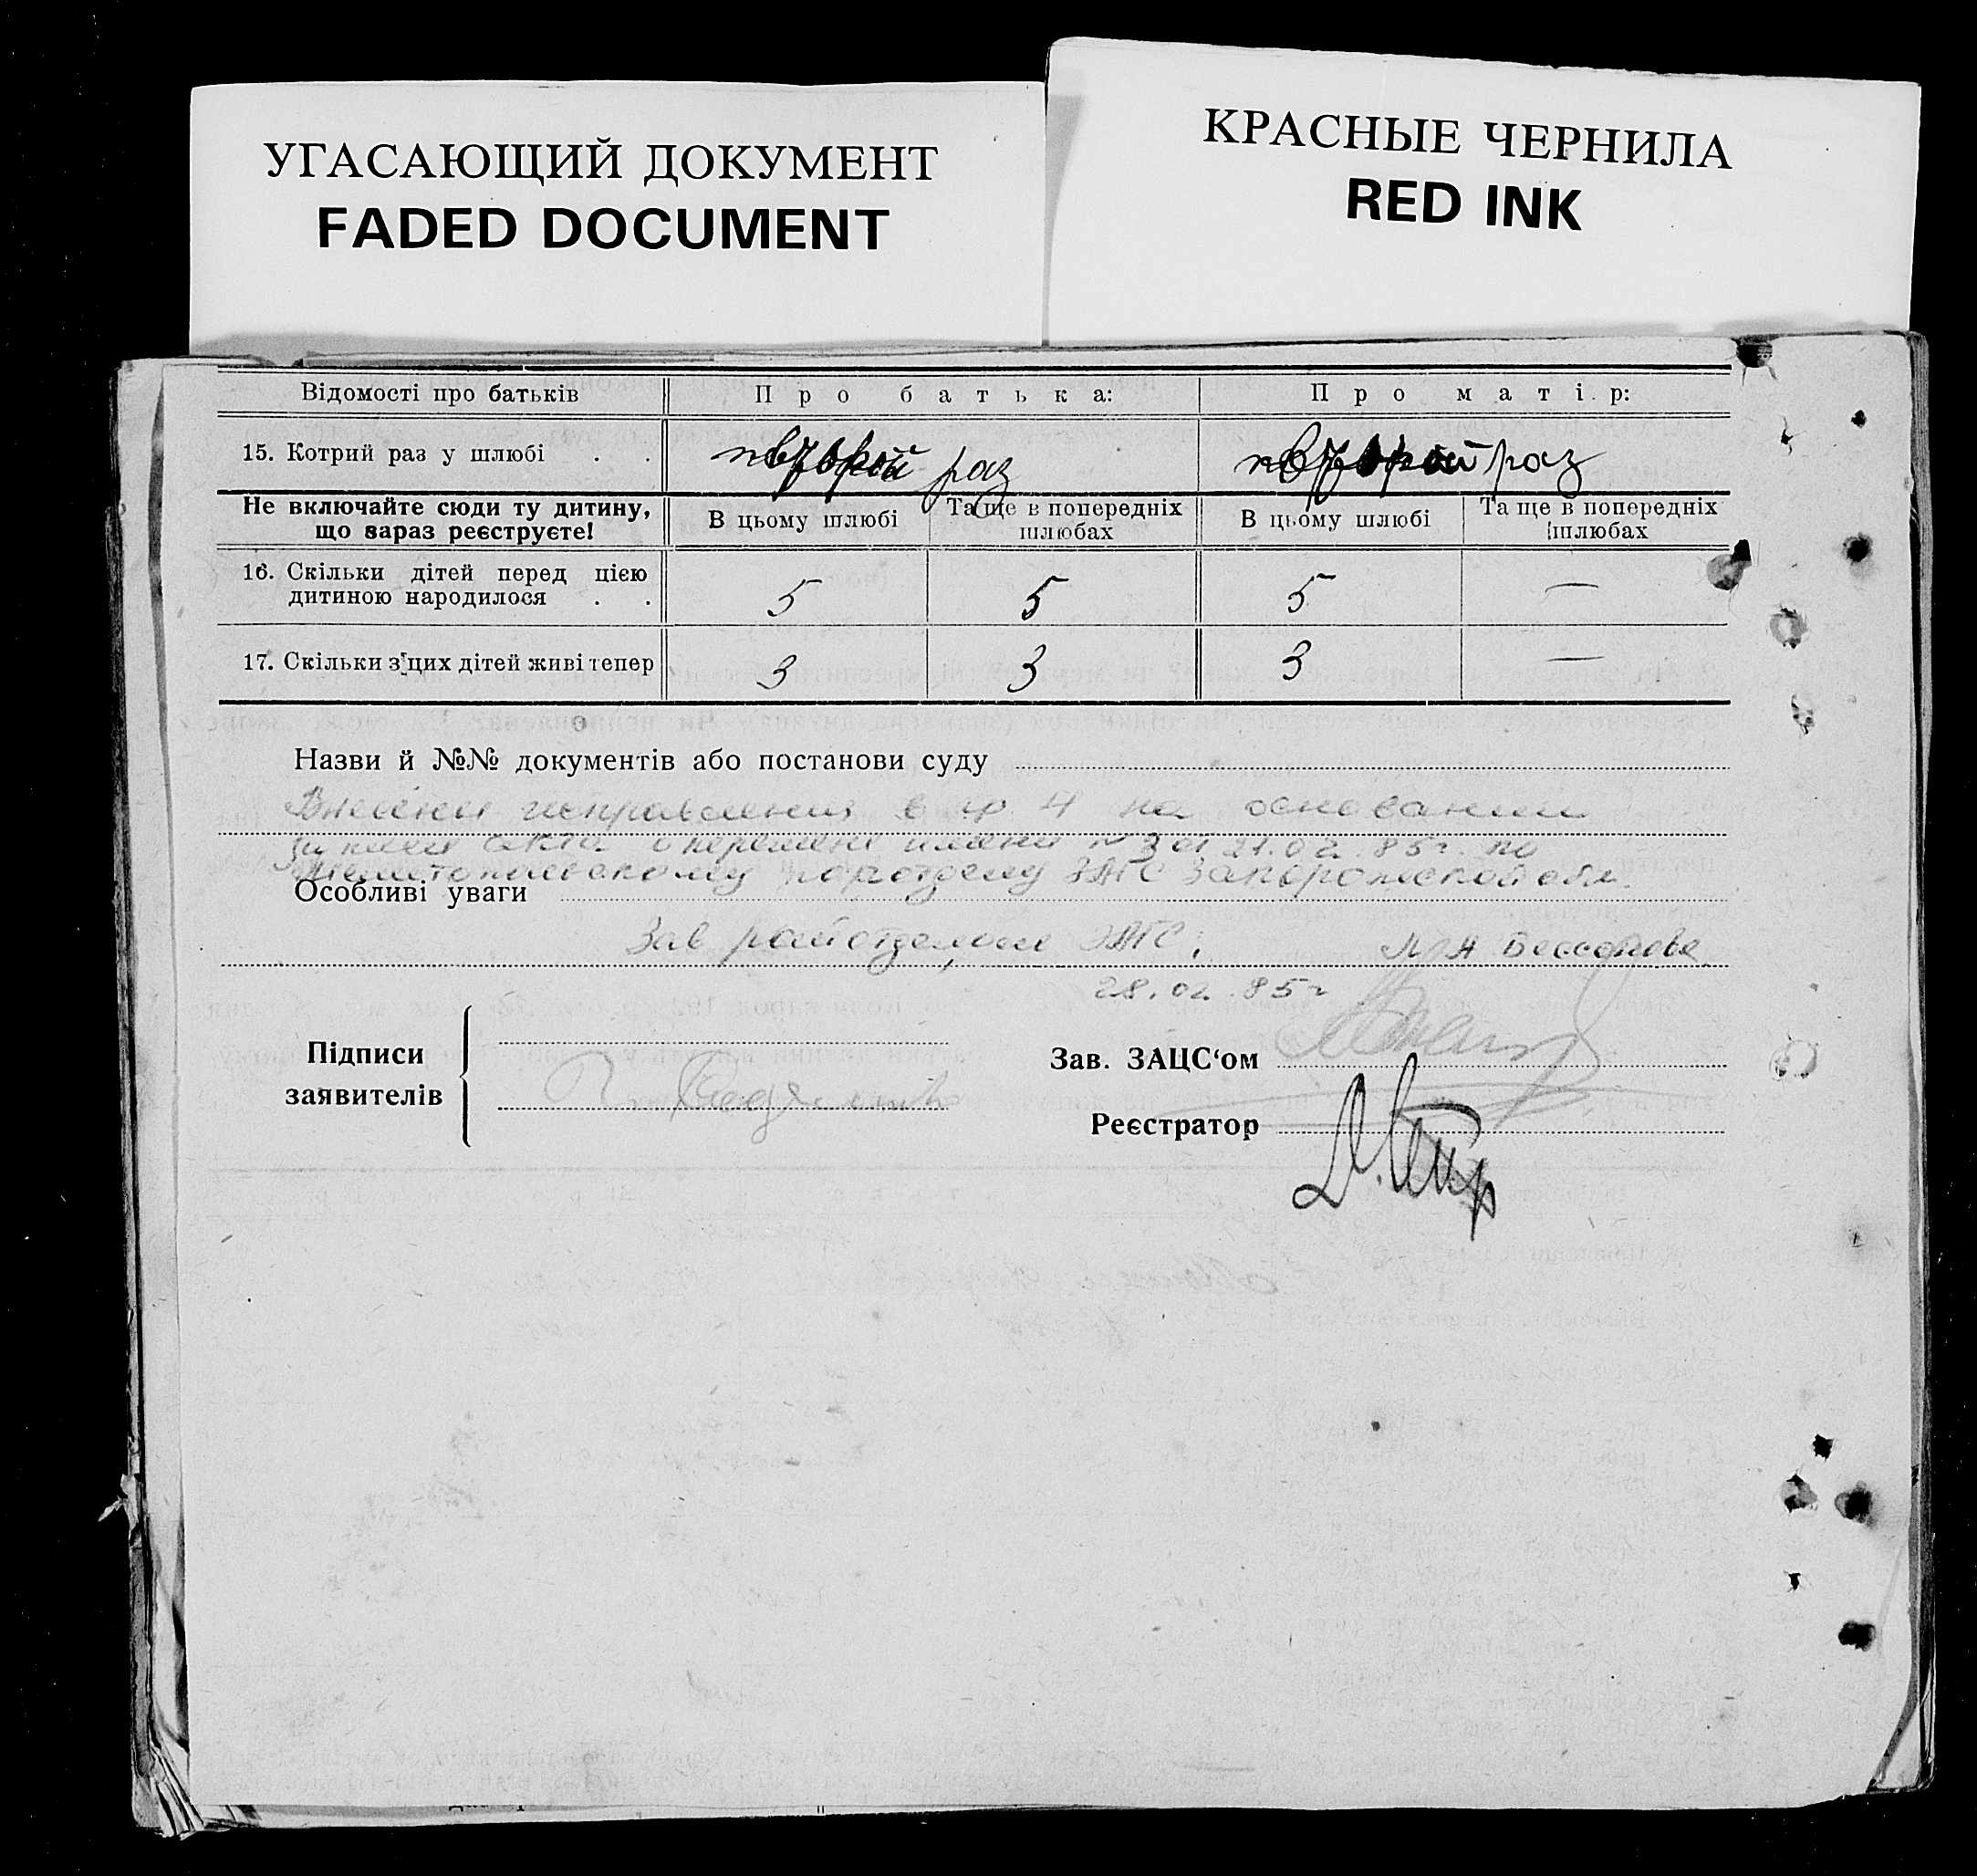 УГАСАЮЩИЙ ДОКУМЕНТ
FADED DOCUMENT
КРАСНЫЕ ЧЕРНИЛА
RED INK
Відомості про батьків Про батька: Про матір:
15. Котрий раз у шлюбі . . второй раз второй раз
Не включайте сюди ту дитину, що зараз реєструєте! В цьому шлюбі Та ще в попередніх шлюбах В цьому шлюбі Та ще в попередніх шлюбах
16. Скільки дітей перед цією
дитиною народилося . . 5 5 5 —
17. Скільки з цих дітей живі тепер 3 3 3 —
Назви й №№ документів або постанови суду
Внесены исправления в гр 4 на основании
записи акта о перемене имени № 3 от 21.02.85г. по
Мелитопольскому горотделу ЗАГС Запорожской обл.
Особливі уваги
Зав райотделом ЗАГС:
28.02.85г
Підписи
заявителів
Зав. ЗАЦС‘ом
Реєстратор